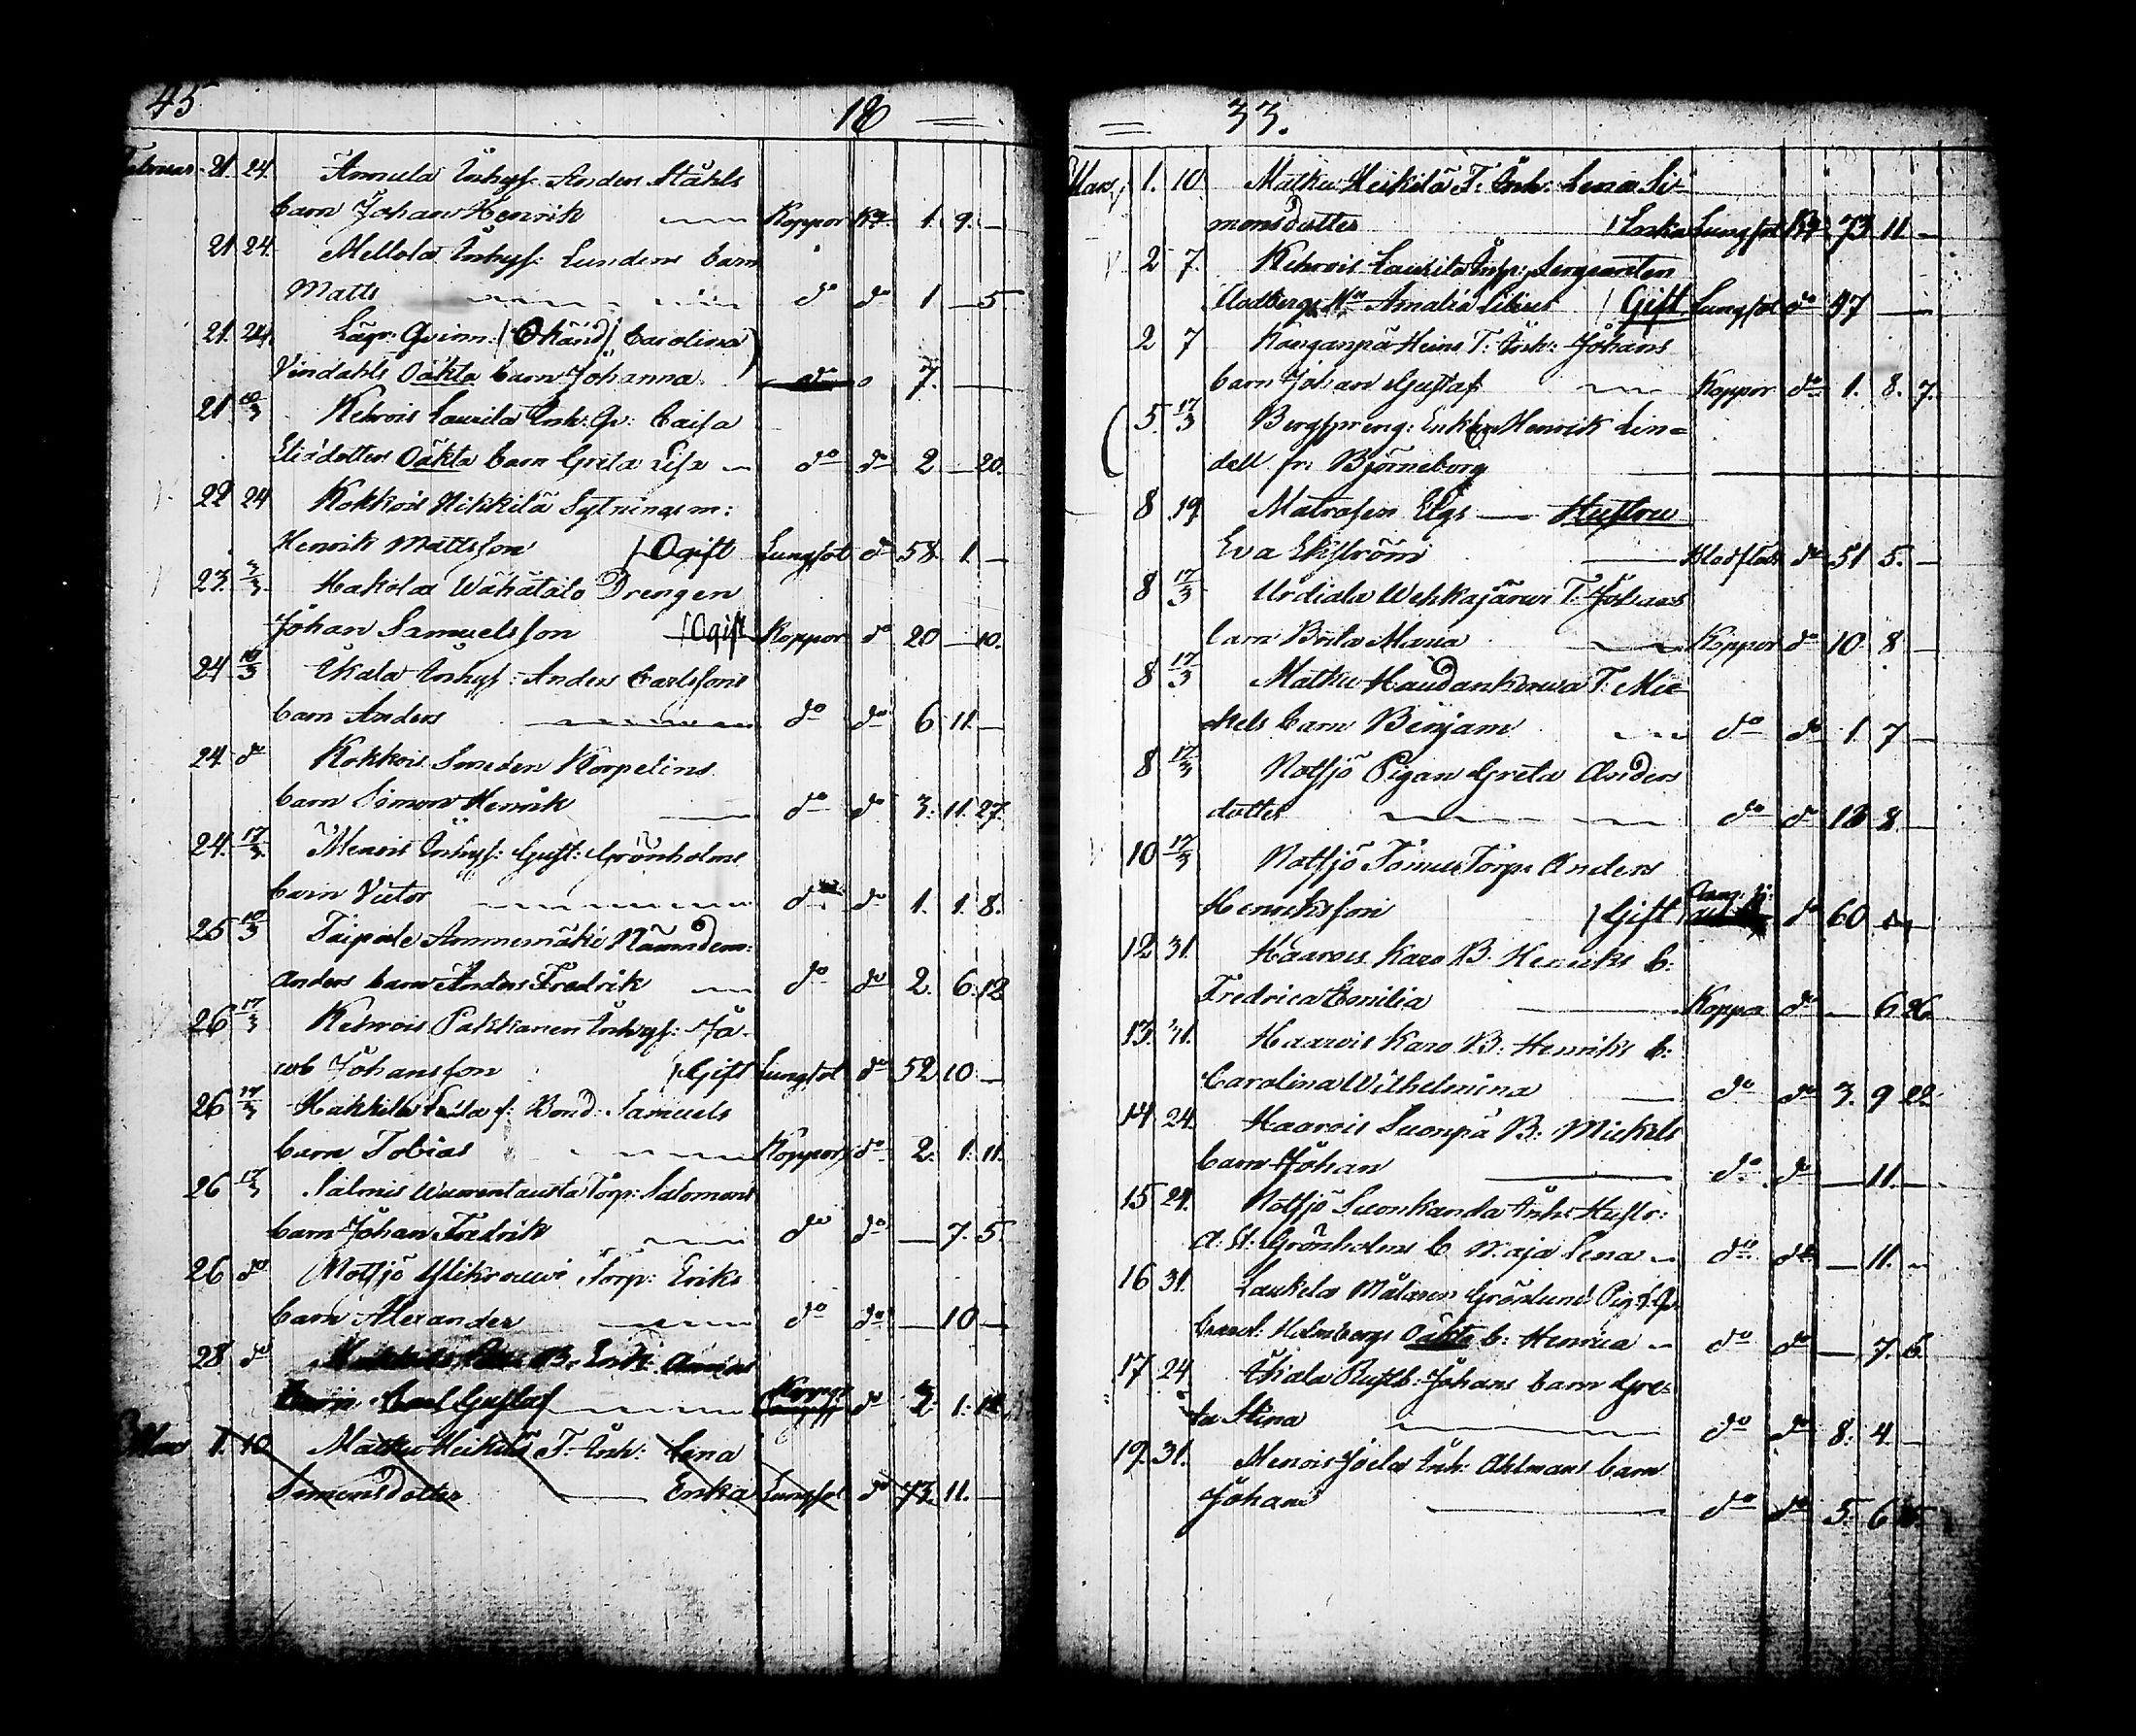 45
18 =
Februar. 21. 24. Annula Inhys: Anders Ståhls
barn Johan Henrik Koppor Kg. 1. 9. —
21 24. Mellola Inhys: Lundens barn
Matts do do 1 — 5
21. 24. Lägr: Qvinn: (Okänd) Carolina
Vindahls Oäkta barn Johanna. 7. —
21 10/3 Kehrois Laurila Inh: Qv: Caisa
Eliædotters Oäkta barn Greta Lisa do do 2 — 20.
22 24 Kokkois Nikkilä Sytningsm:
Henrik Mattsson / Ogift Lungsot do 58. 1. —
23. 3/3. Hakola Wähätalo Drengen
Johan Samuelsson / Ogift Koppor do 20 — 10.
24 10/3 Ukala Inhys: Anders Carlssons
barn Anders do do 6 11. —
24. do Kokkois Smeden Korpelins
barn Simon Henrik do do 3. 11. 27.
24. 17/3. Menois Inhys: Gust: Grönholms
barn Victor do do 1. 1. 8.
25 10/3 Taipale Ammemäki Nämndem:
Anders barn Anders Fredrik do do 2. 6. 12
26 17/3 Kehrois Pakkanen Inhys: Ja-
cob Johansson / Gift Lungsot do 52 10 —
26 17/3 Hakkila Seila f: Bond: Samuels
barn Tobias Koppor do 2. 1. 11.
26 17/3 Salmis Wuorentausta Torp: Salomons
barn Johan Fredrik do do — 7. 5.
26 do Notsjö Ylikrouvi Torp: Eriks
barn Alexander do do — 10 —
28 do B. Erik
Carl Gustaf Koppor do 2. 1.
Mars 1. 10. Matku Heikilä T: Inh: Lena
Simonsdotter — Enka Lungsot do 73. 11. —
= 33.
Mars 1. 10 Matku Heikilä T: Inh: Lena Si-
monsdotter / Enka Lungsot Kg. 73 11 —
2 7. Kehrois Laurila Inh: Sergeanten
Amalia / Gift Lungsot do 47 —
2 7 Kanganpä Heins T: Inh: Johans
barn Johan Gustaf Koppor do 1. 8. 7.
5. 17/3 Bergspreng: Enkl: Henrik Lin=
dell fr: Björneborg
8 19 Matrosen Elgs — Hustru
Eva Ekström Blodflod do 51 5. —
8 17/3 Urdiala Wehkajärwi T: Johans
barn Brita Maria Koppor do 10. 8 —
8 17/3 Matku Haudankorwa T: Mic-
kels barn Benjam do do 1. 7 —
8 17/3 Notsjö Pigan Greta Anders
dotter do do 18 8. —
10 17/3 Notsjö Torp: Anders
Henriksson / Gift do 60 —
12 31. Haarois Karo B. Henriks b:
Fredrica Emilia Koppor do — 6 26.
13. 31. Haarois Karo B: Henriks b:
Carolina Wilhelmina do do 3. 9 22
14. 24. Haarois Suonpä B: Mickels
barn Johan do do — 11. —
15 24. Notsjö Suonkanda Inh: Hustr:
Grönholms b. Maja Lena do do — 11. —
16 31. Laukela Målaren Grönlund Pig:
Holmbergs Oäkta b: Henrica do do — 7. 5.
17 24 Ukala Rusth: Johans barn Gre-
ta Stina do do 8. 4. —
19. 31. Menois Joela Inh: Ahlmans barn
Johan do do 5. 6